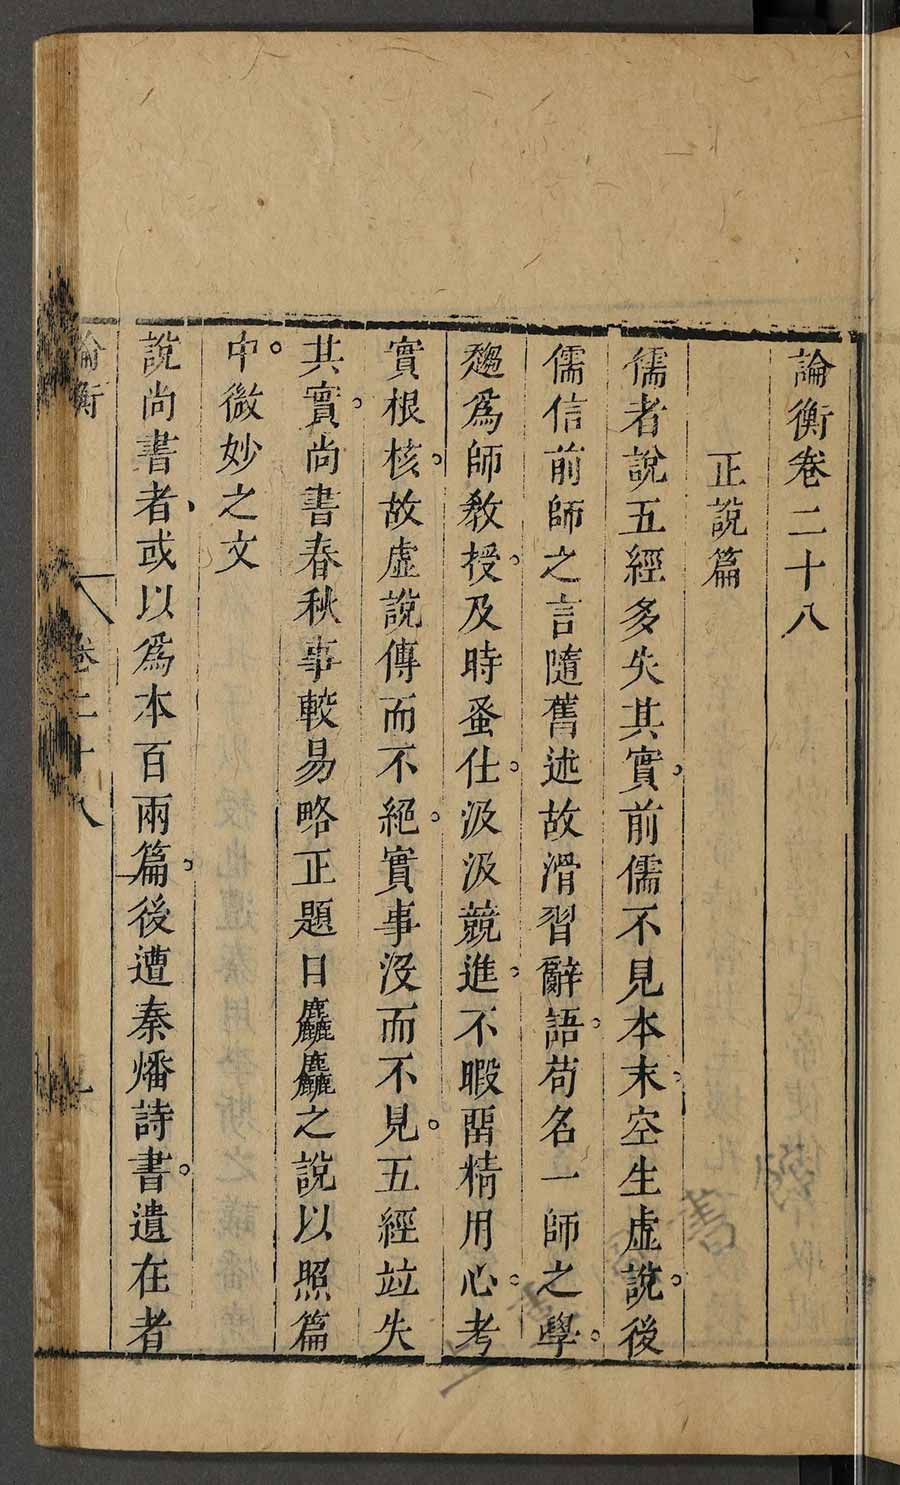 論衡卷二十八
正說篇
儒者說五經多失其實。前儒不見本末。空生虛說。後
儒信前師之言隨舊述故滑習辭語。苟名一師之學。
趨爲師敎授。及時蚤仕。汲汲競進。不暇畱精用心。考
實根核。故虛說傳而不絕。實事沒而不見。五經竝失
其實。尚書春秋事較易略正題目麤麤之說以照篇
中。微妙之文
說尚書者、或以爲本百兩篇。後遭秦燔詩書。遺在者
論衡 卷二十八 一